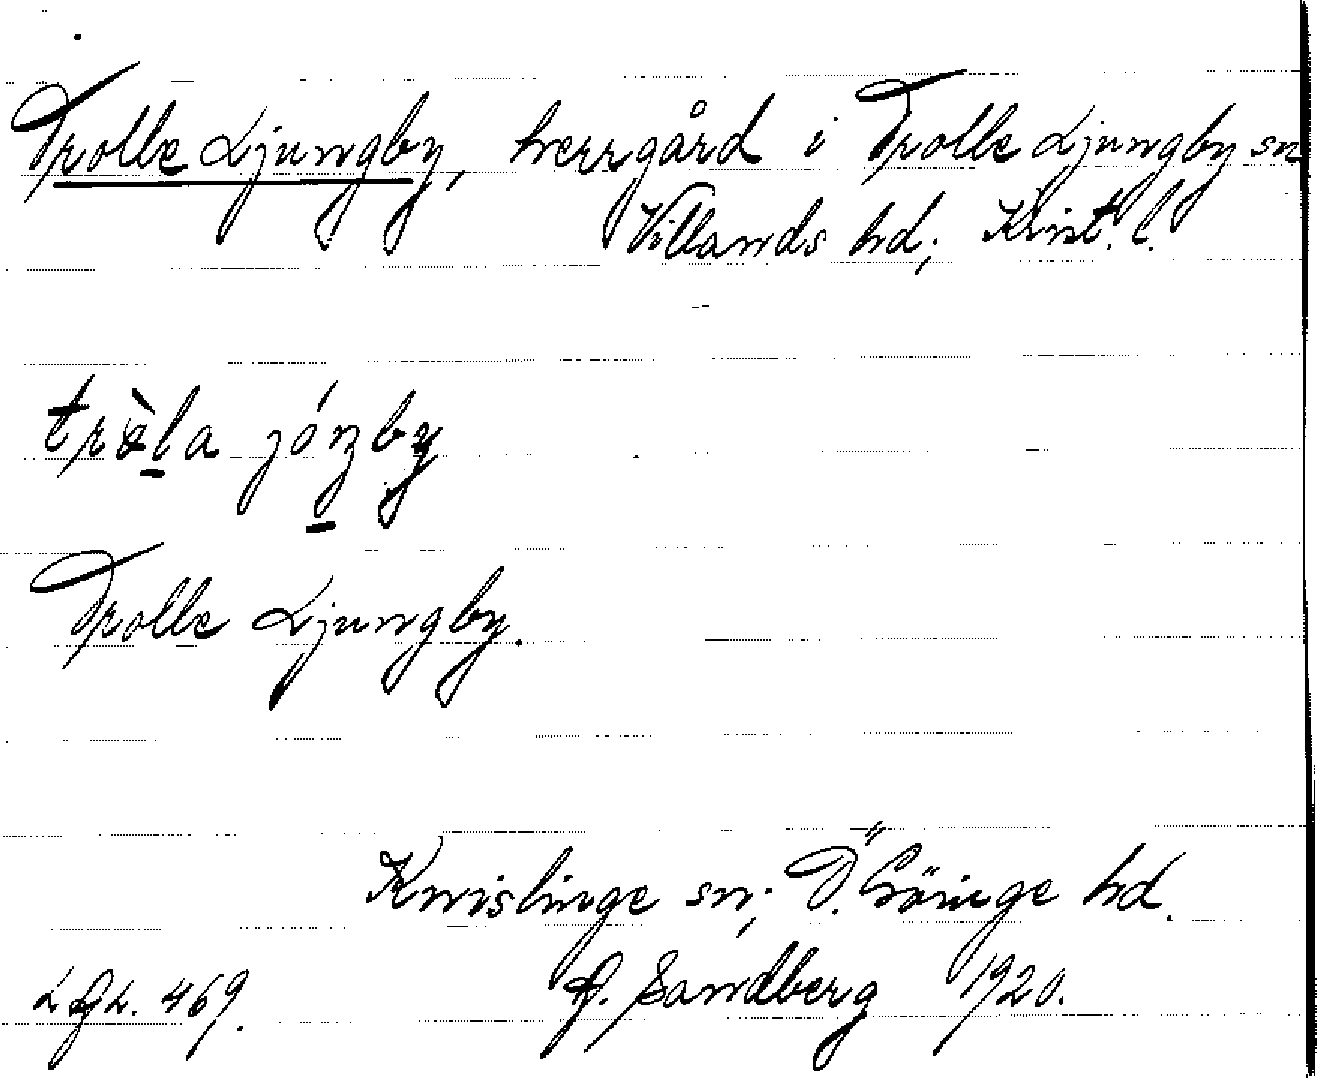 Trolle Ljungby, herrgård i Trolle Ljungby sn
Villands hd; Krist. l.
Trolle Ljungby.
Knislinge sn; Ö. Göinge hd.
469. Sandberg 1920.